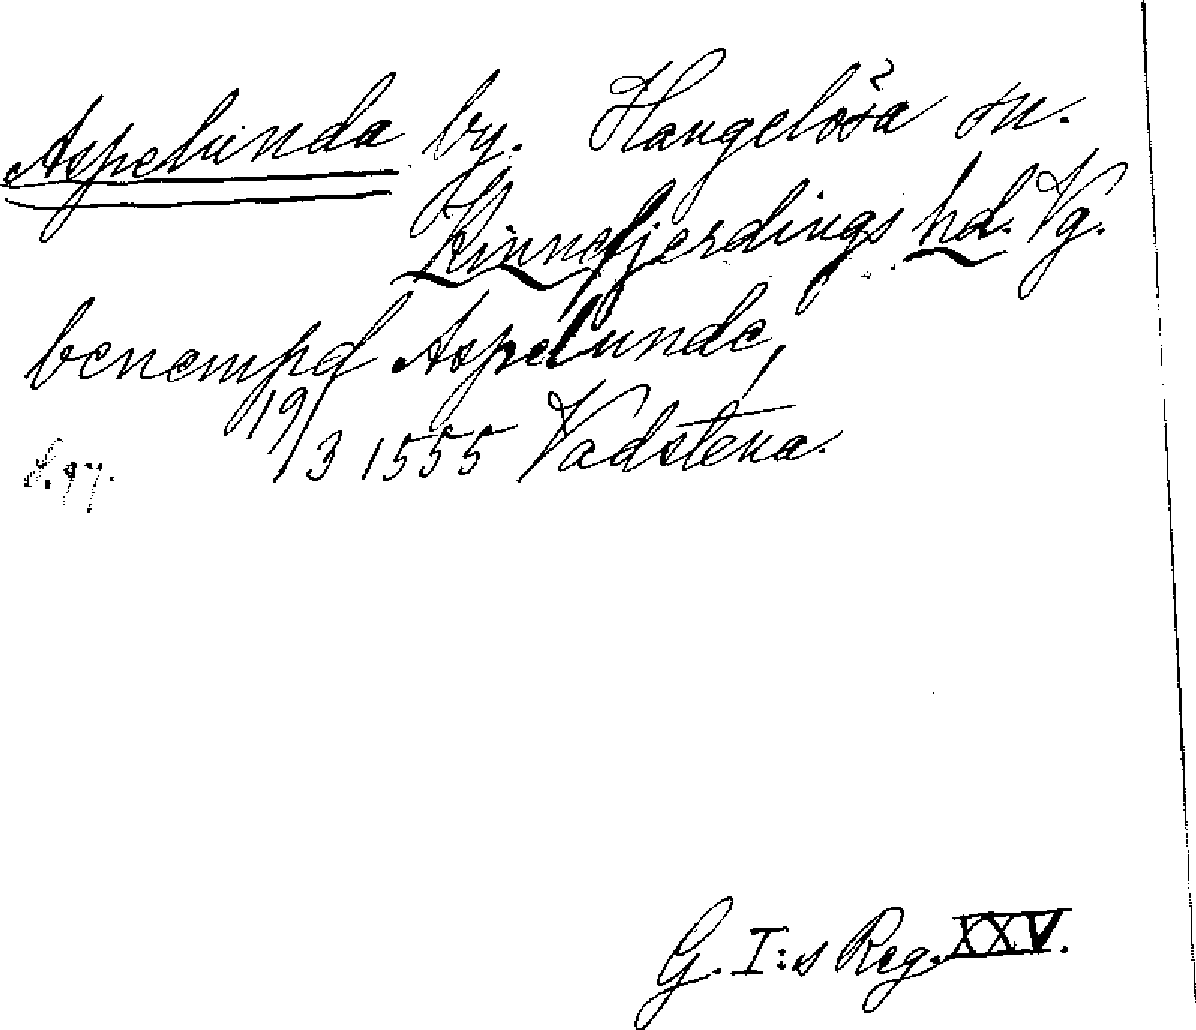 Aspelunda by. Hangelösa sn.
Kinnefjerdings hd. Vg.
benempd Aspelunde,
19/3 1555 Vadstena.
s. 97.
G. I:s Reg. XXV.